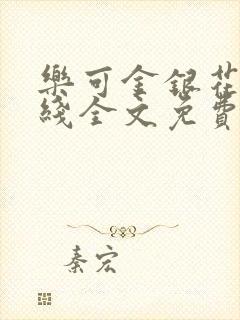 樂可金銀花
綫全文免費
秦宏